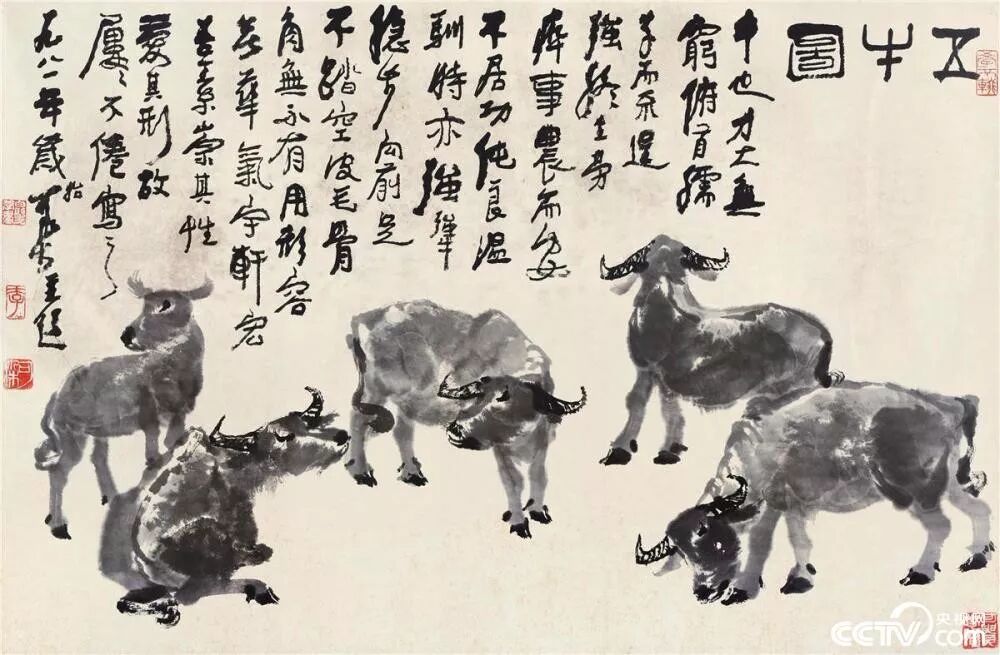 五牛圖
牛也力大無
窮俯首孺
子而不逞
强終生勞
瘁事農而安
不居功純良温
馴時亦强犟
穩步向前足
不踏空皮毛骨
角無不有用形容
無華氣宇軒宏
吾素崇其性
愛其形故
屢屢不倦寫之
一九八一年歲始可染並題
可染
央视网
CCTV.com